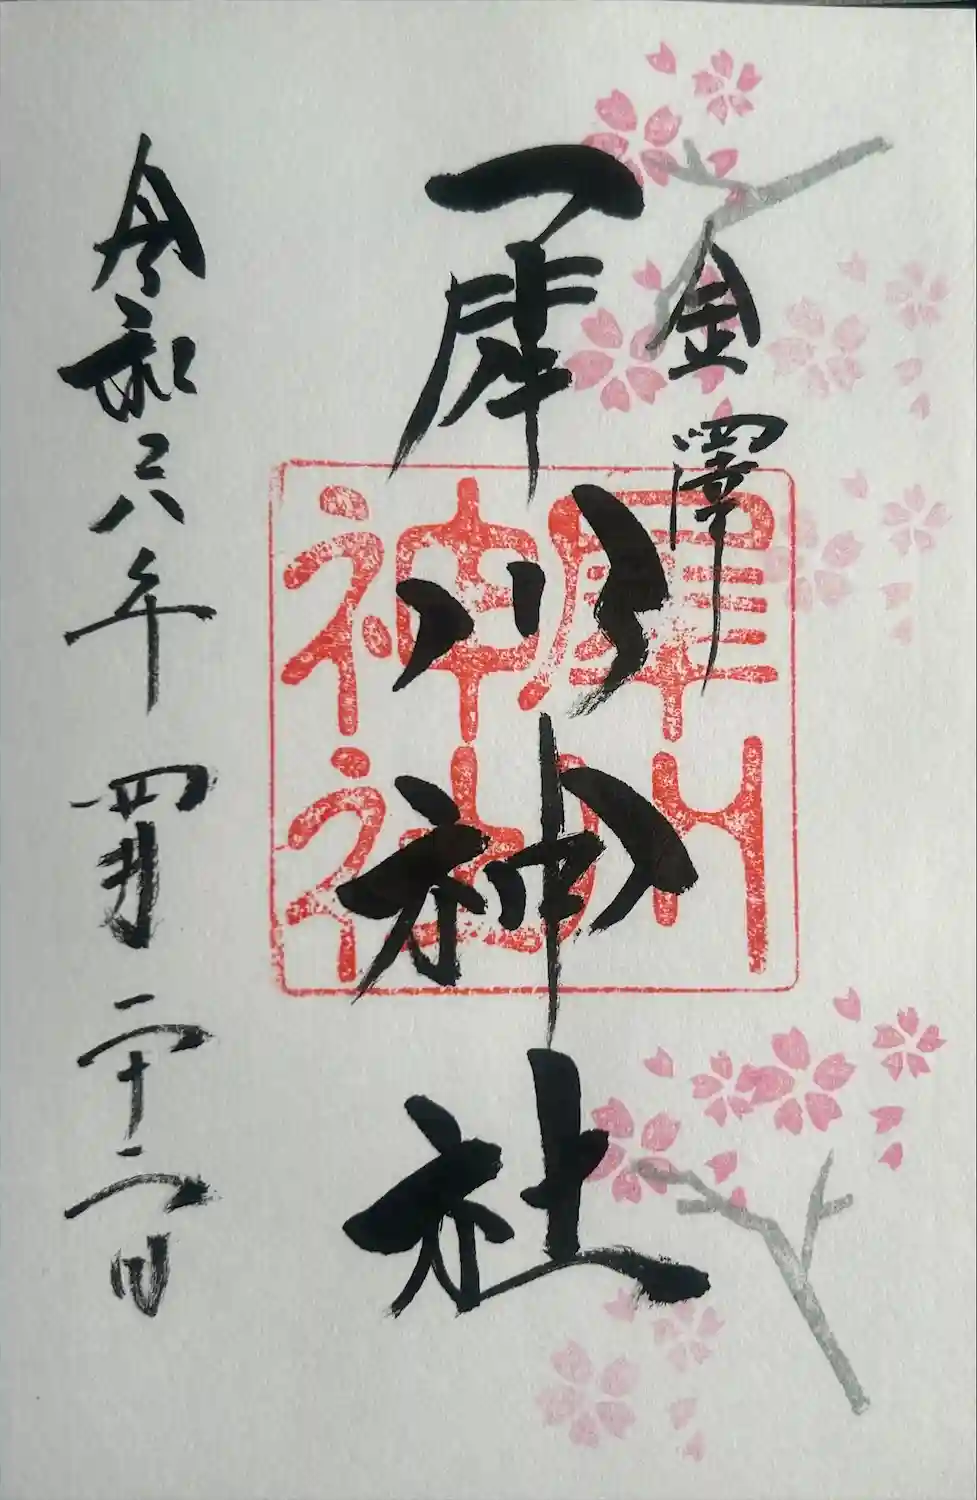 金澤
犀川神社
犀川
神社
令和六年 四月 二十二日